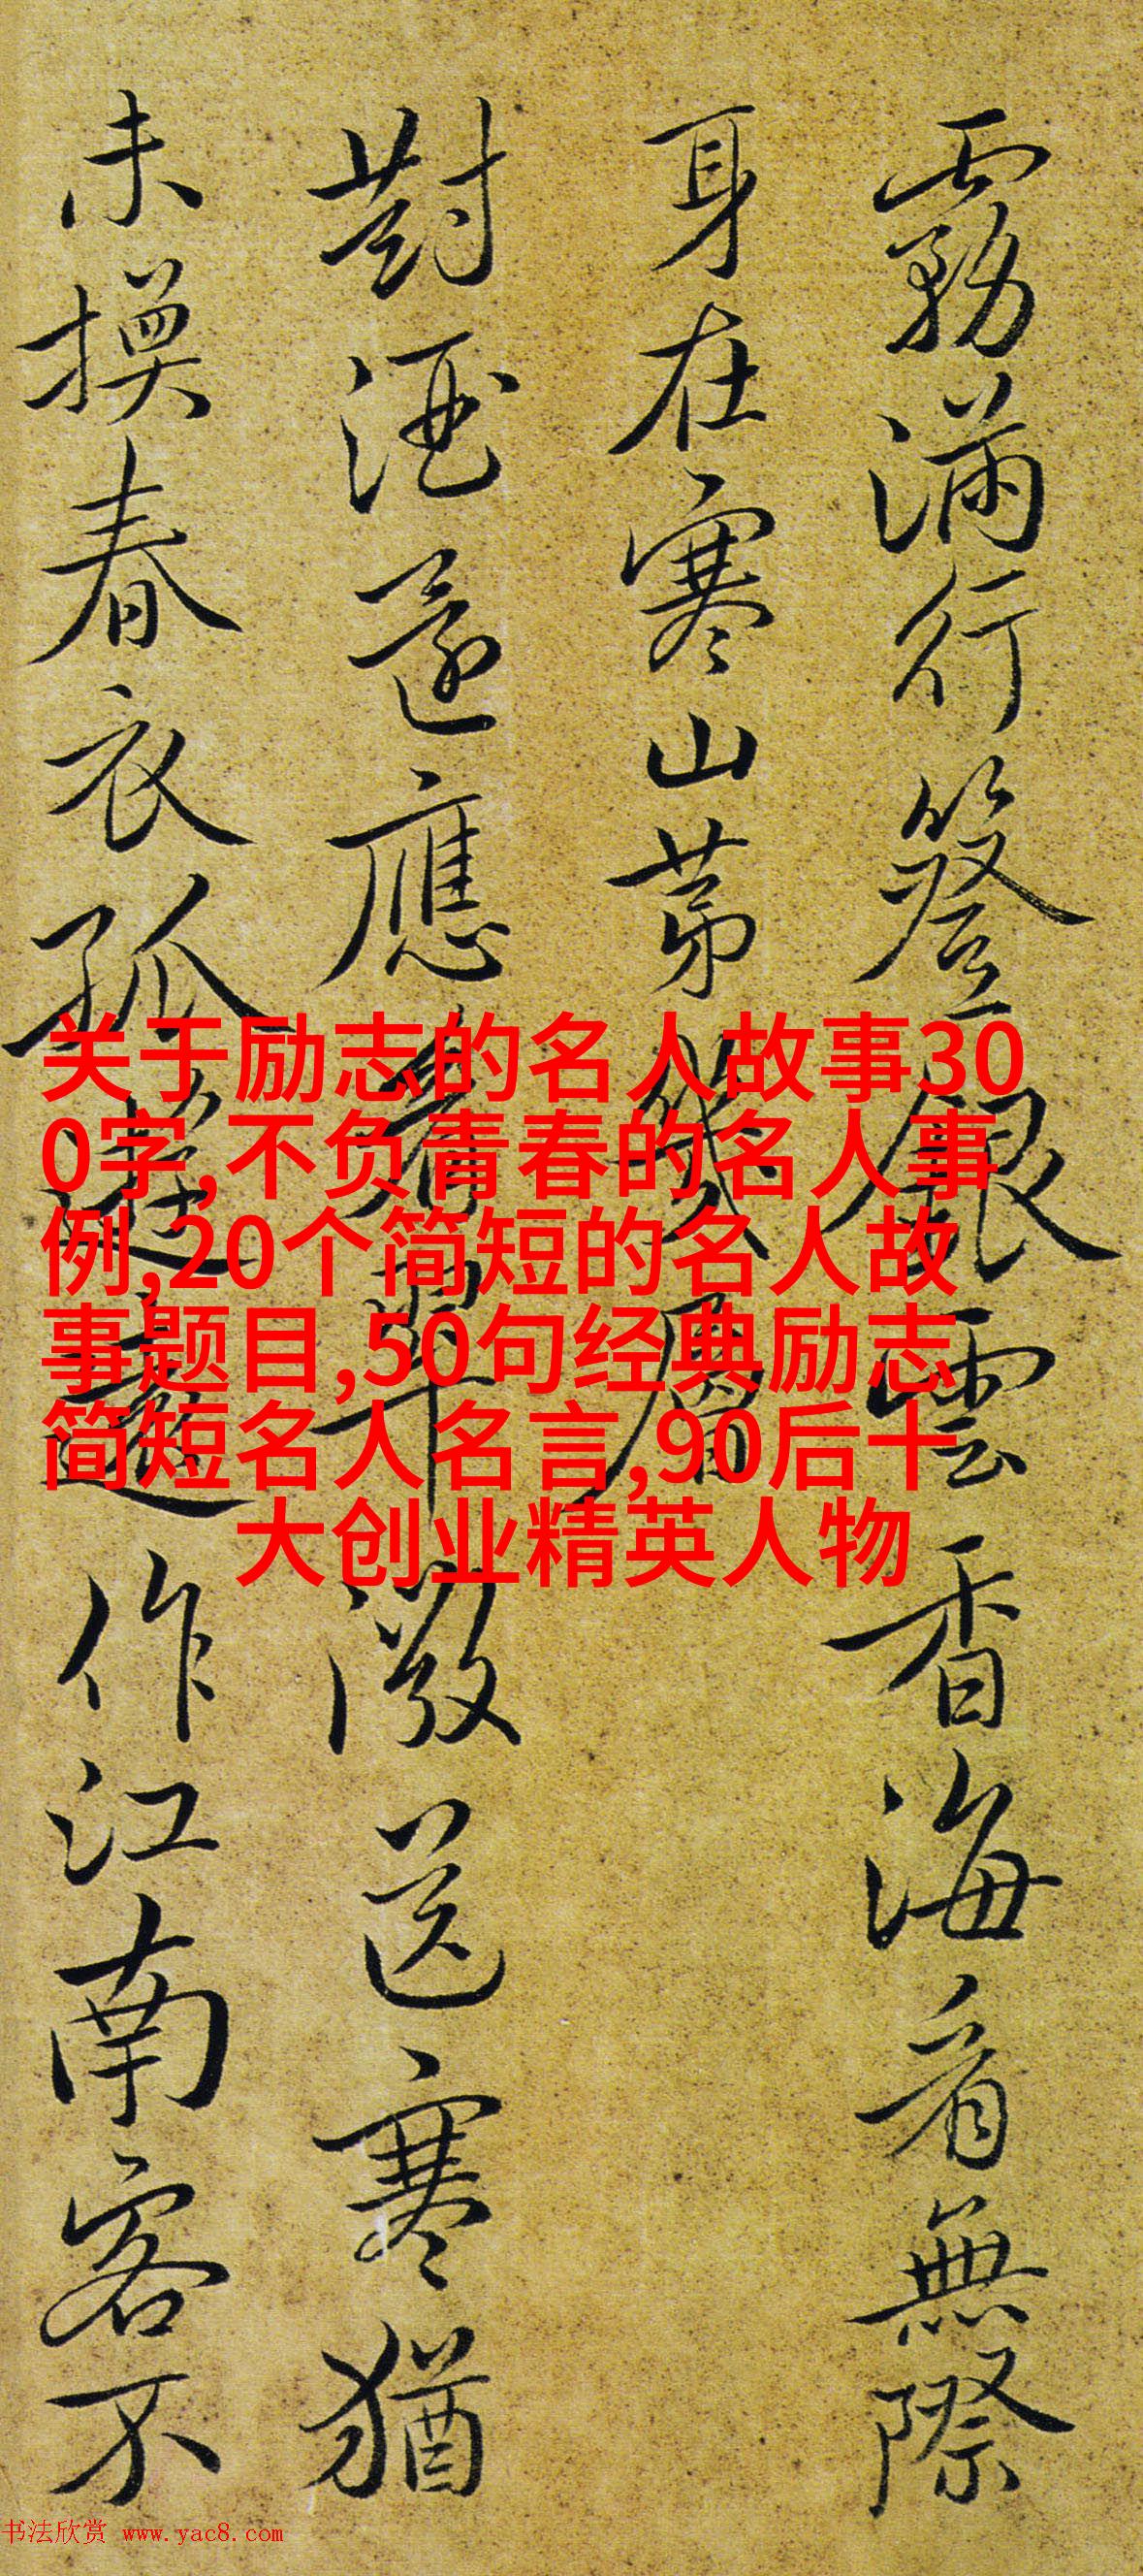 霧滿行簦銀雲香海看無際
身在寒山第幾層
對酒還應看翠微送寒猶
未換春衣孤
作江南客不
关于励志的名人故事30
0字,不负青春的名人事
例,20个简短的名人故
事题目,50句经典励志
简短名人名言,90后十
大创业精英人物
书法欣赏 www.yac8.com